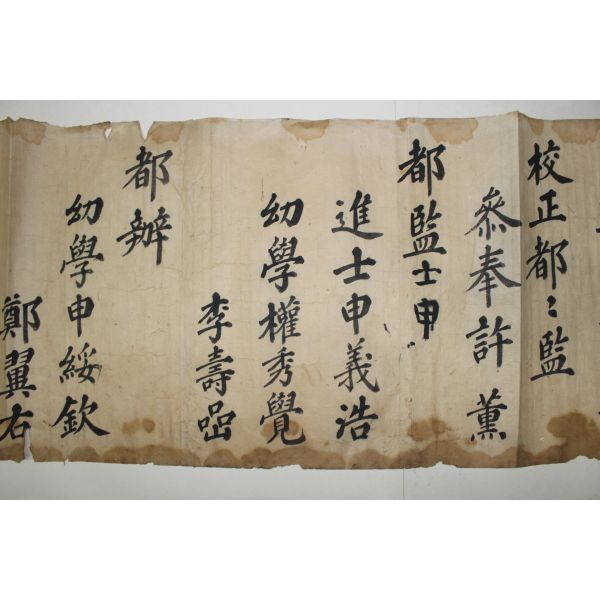 校正都〻監
叅奉許薰
都監士申
進士申義浩
幼學權秀覺
李壽嵒
都辦
幼學申綏欽
鄭翼右